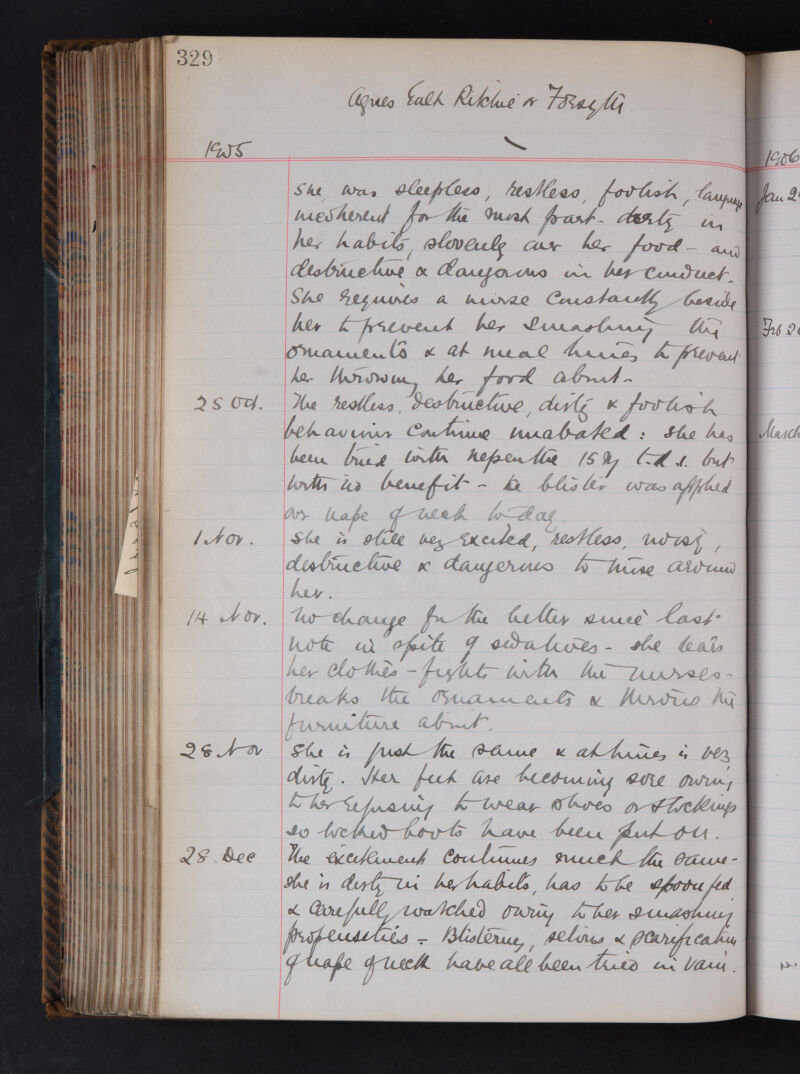 329
Agnes Ritchie or Forsyth
1905
She was sleepless, restless, foolish, language
incoherent for the most part - dirty in
her habits, slovenly over her food - and
destructive & dangerous in her conduct.
She requires a nurse constantly beside
her to prevent her smashing the
ornaments & at meal times to prevent
her throwing her food about -
25 Oct. The restless, destructive, dirty & foolish
behaviour continue unabated: she has
been tried with nepenthe 15 t.d.s. but
with no benefit - blister was applied
over nape of neck to-day.
1 Nov. She is still very excited, restless, noisy,
destructive & dangerous to those around
her.
14 Nov. No change for the better since last
note in spite of sedatives - she tears
her clothes - fights with the nurses -
breaks the ornaments & throws the
furniture about.
28 Nov She is just the same & at times is very
dirty. Her feet are becoming sore owing
to her refusing to wear shoes or stockings
so locked boots have been put on.
28. Dec The excitement continues much the same -
she is dirty in her habits, has to be spoon fed
& carefully watched owing to her smashing
propensities - Blistering, setons & scarification
of nape of neck have all been tried in vain.
1906
Jan 2
Feb 2
March